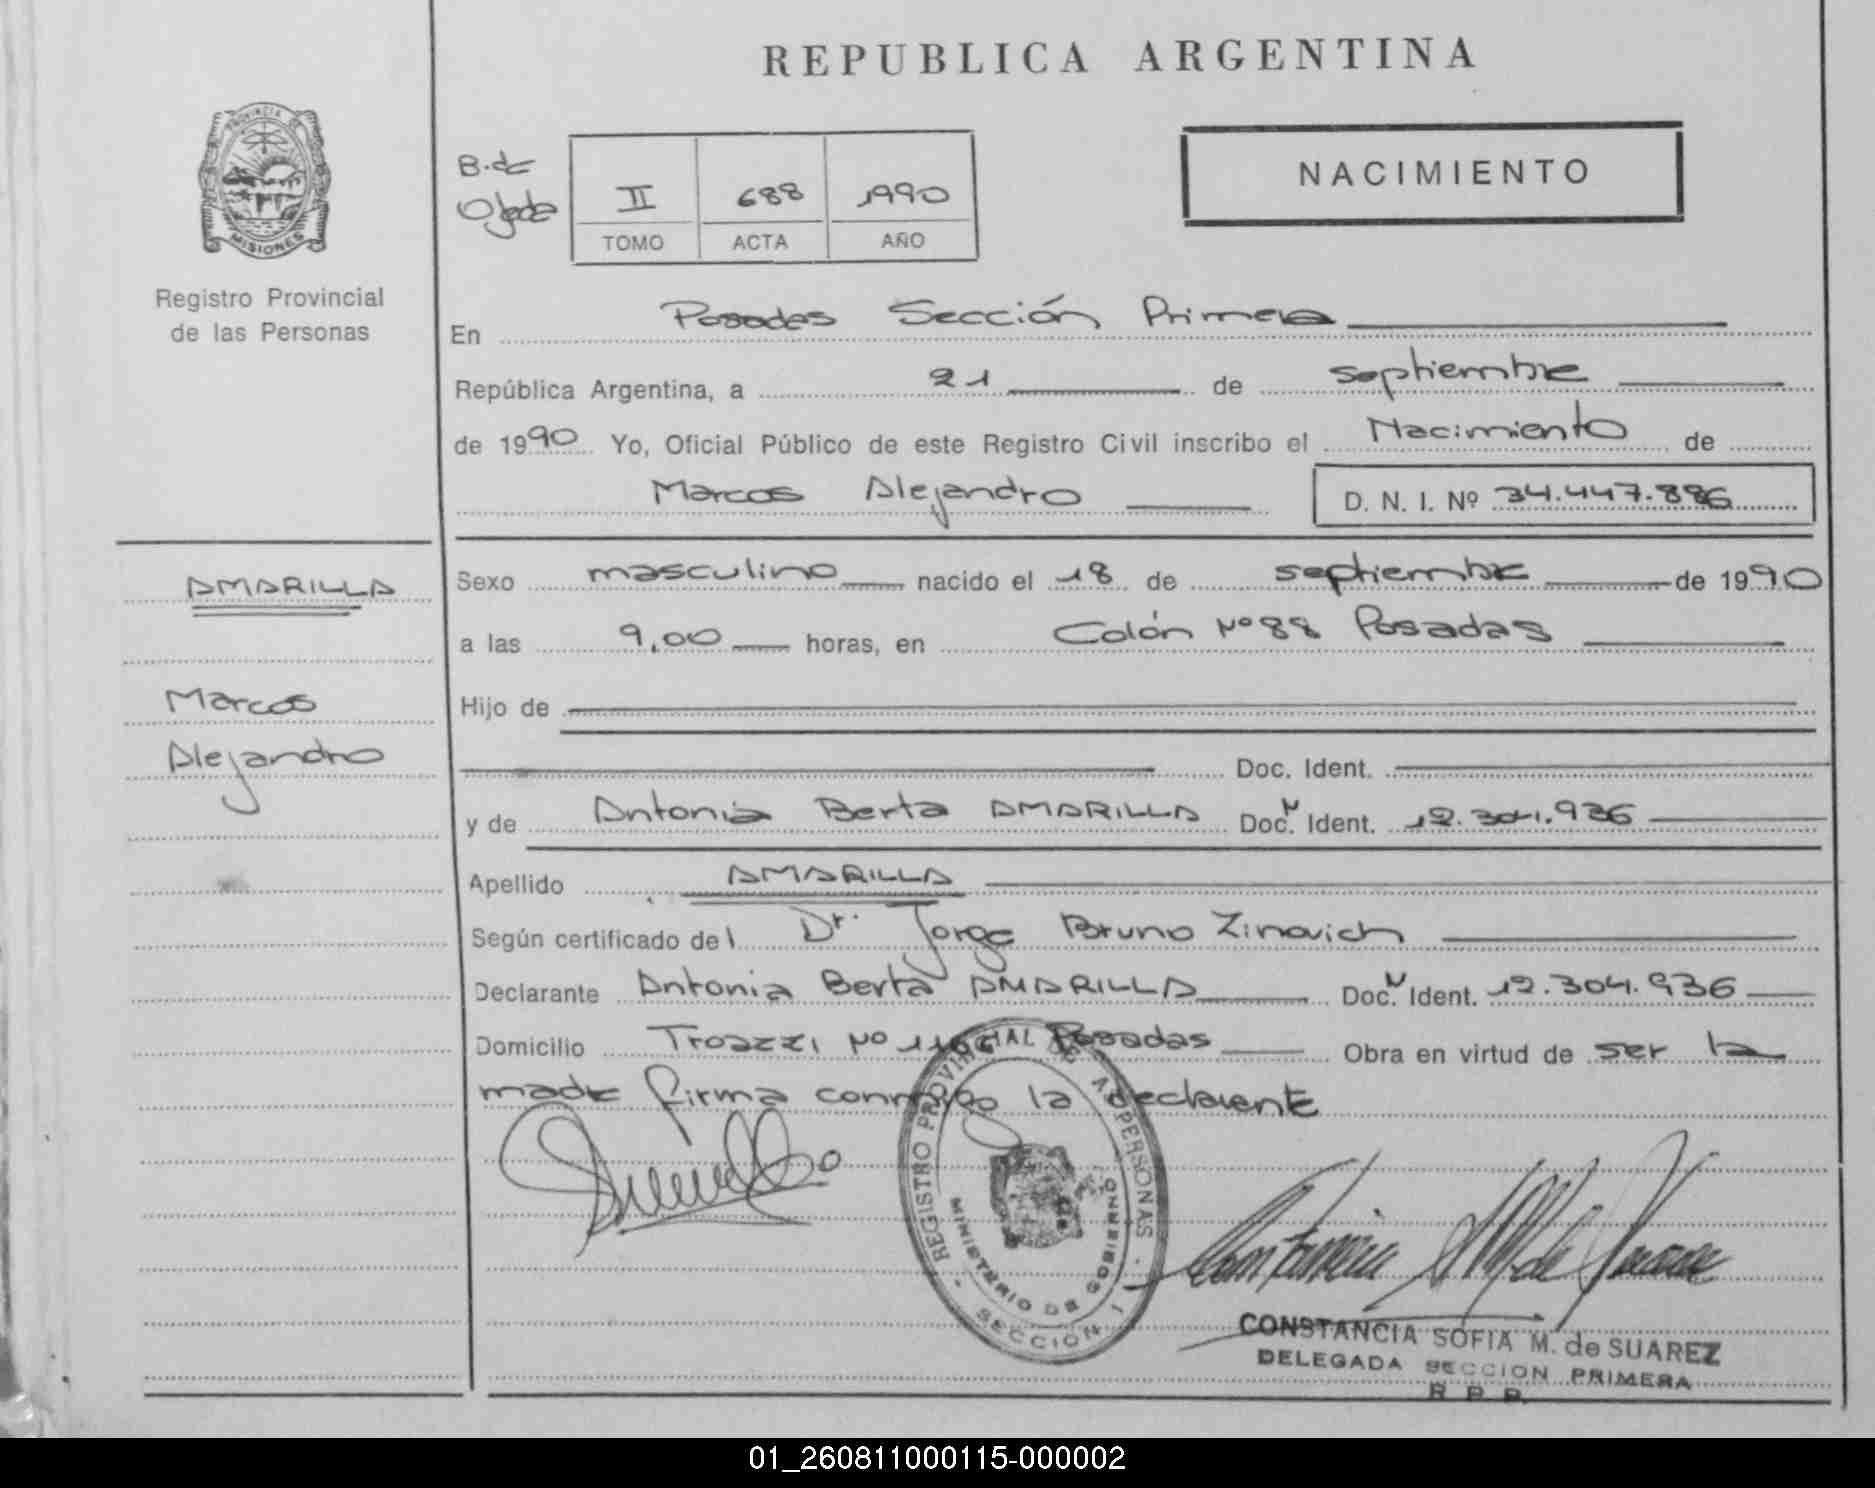 REPUBLICA ARGENTINA
PROVINCIA DE
MISIONES
Registro Provincial
de las Personas
B. de
Ojeda
II 688 1990
TOMO ACTA AÑO
NACIMIENTO
En Posadas Sección Primera
República Argentina, a 21 de septiembre
de 1990 Yo, Oficial Público de este Registro Civil inscribo el Nacimiento de
Marcos Alejandro D. N. I. Nº 34.447.886
AMARILLA
Marcos
Alejandro
Sexo masculino nacido el 18 de septiembre de 1990
a las 9,00 horas, en Colón Nº 88 Posadas
Hijo de
Doc. Ident.
y de Antonia Berta AMARILLA Doc. N Ident. 12.304.936
Apellido AMARILLA
Según certificado del Dr. Jorge Bruno Zinovich
Declarante Antonia Berta AMARILLA Doc. N Ident. 12.304.936
Domicilio Nº Posadas Obra en virtud de ser la
madre firma conmigo la declarente
REGISTRO PROVINCIAL DE PERSONAS
MINISTERIO DE GOBIERNO
SECCION 1
CONSTANCIA SOFIA M. de SUAREZ
DELEGADA SECCION PRIMERA
R P P.
01_260811000115-000002